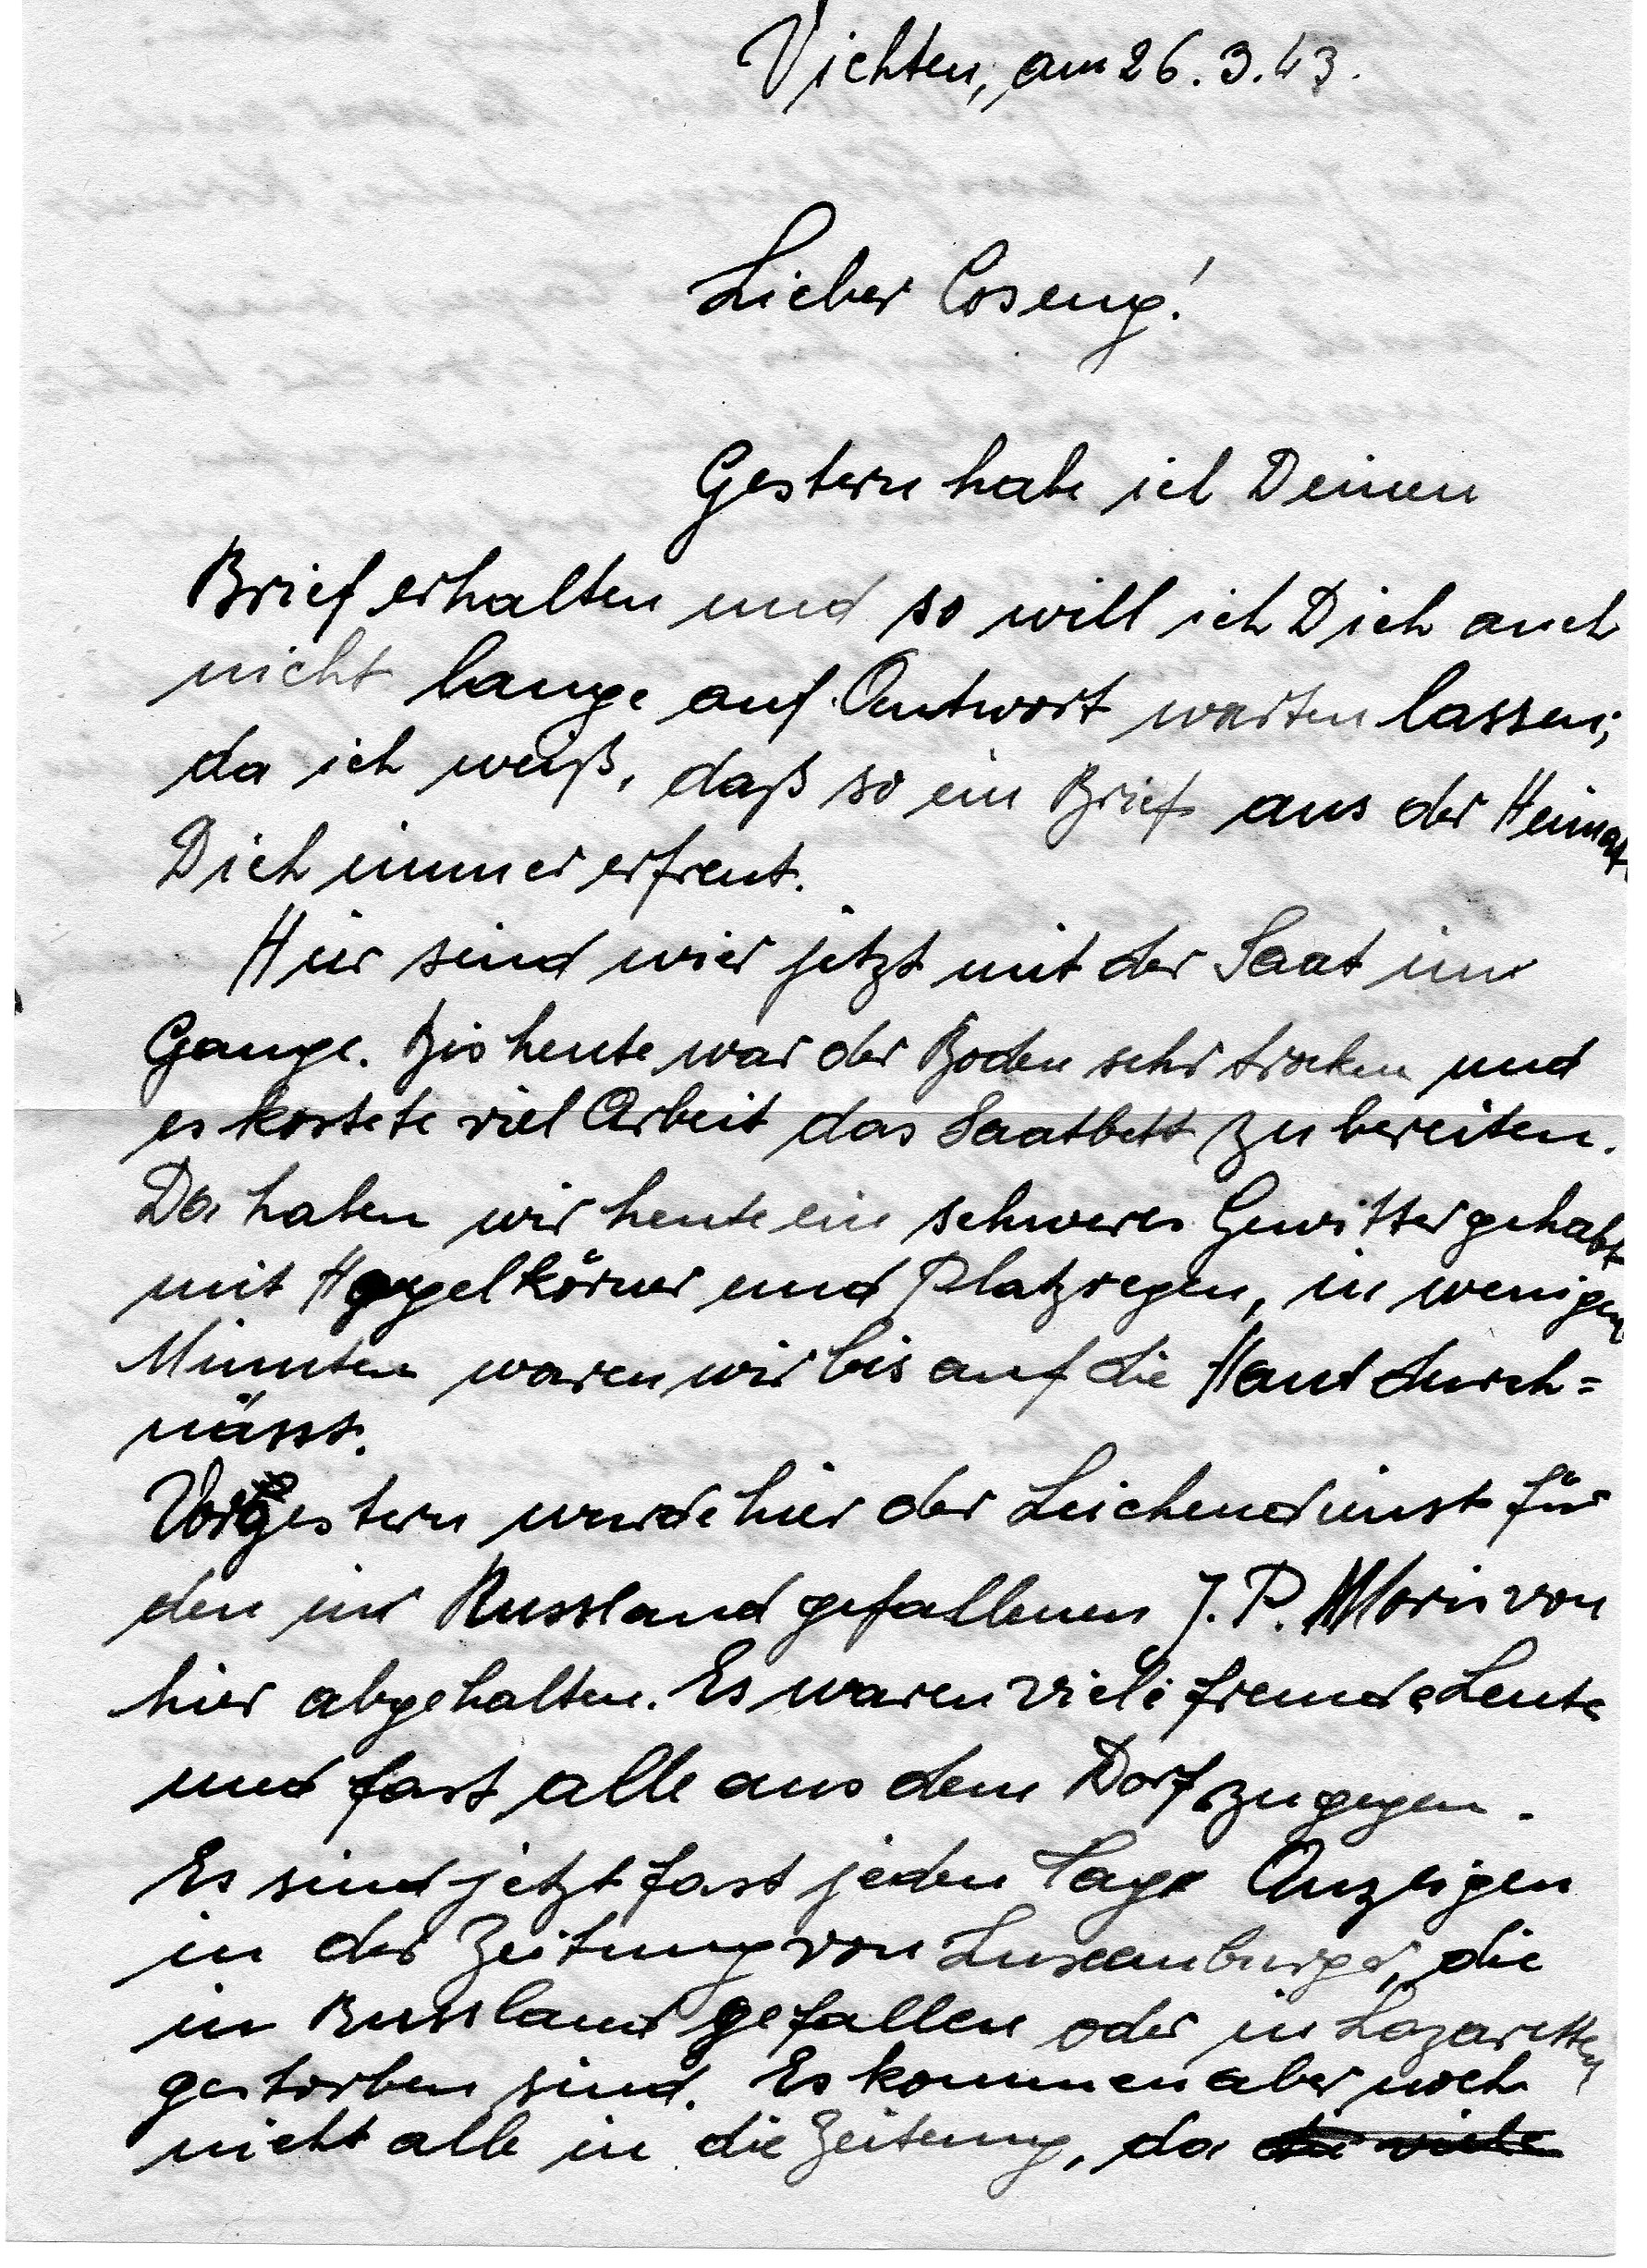 Vichten, am 26.3.43.
Lieber Coseng!
Gestern habe ich Deinen
Brief erhalten und so will ich Dich auch
nicht lange auf Antwort warten lassen;
da ich weiß, daß so ein Brief aus der Heimat
Dich immer erfreut.
Hier sind wier jetzt mit der Saat im
Gange. Bis heute war der Boden sehr trocken und
es kostete viel Arbeit das Saatbett zu bereiten.
Da haben wir heute ein schweres Gewitter gehabt
mit Hagelkörner und Platzregen, in wenigen
Minuten waren wir bis auf die Haut durch=
nässt.
Vorgestern wurde hier der Leichendienst für
den in Russland gefallenen J. P. Moris von
hier abgehalten. Es waren viele fremde Leute
und fast alle aus dem Dorf zugegen.
Es sind jetzt fast jeden Tage Anzeigen
in der Zeitung von Luxemburger, die
in Russland gefallen oder in Lazaretten
gestorben sind. Es kommen aber noch
nicht alle in die Zeitung, da